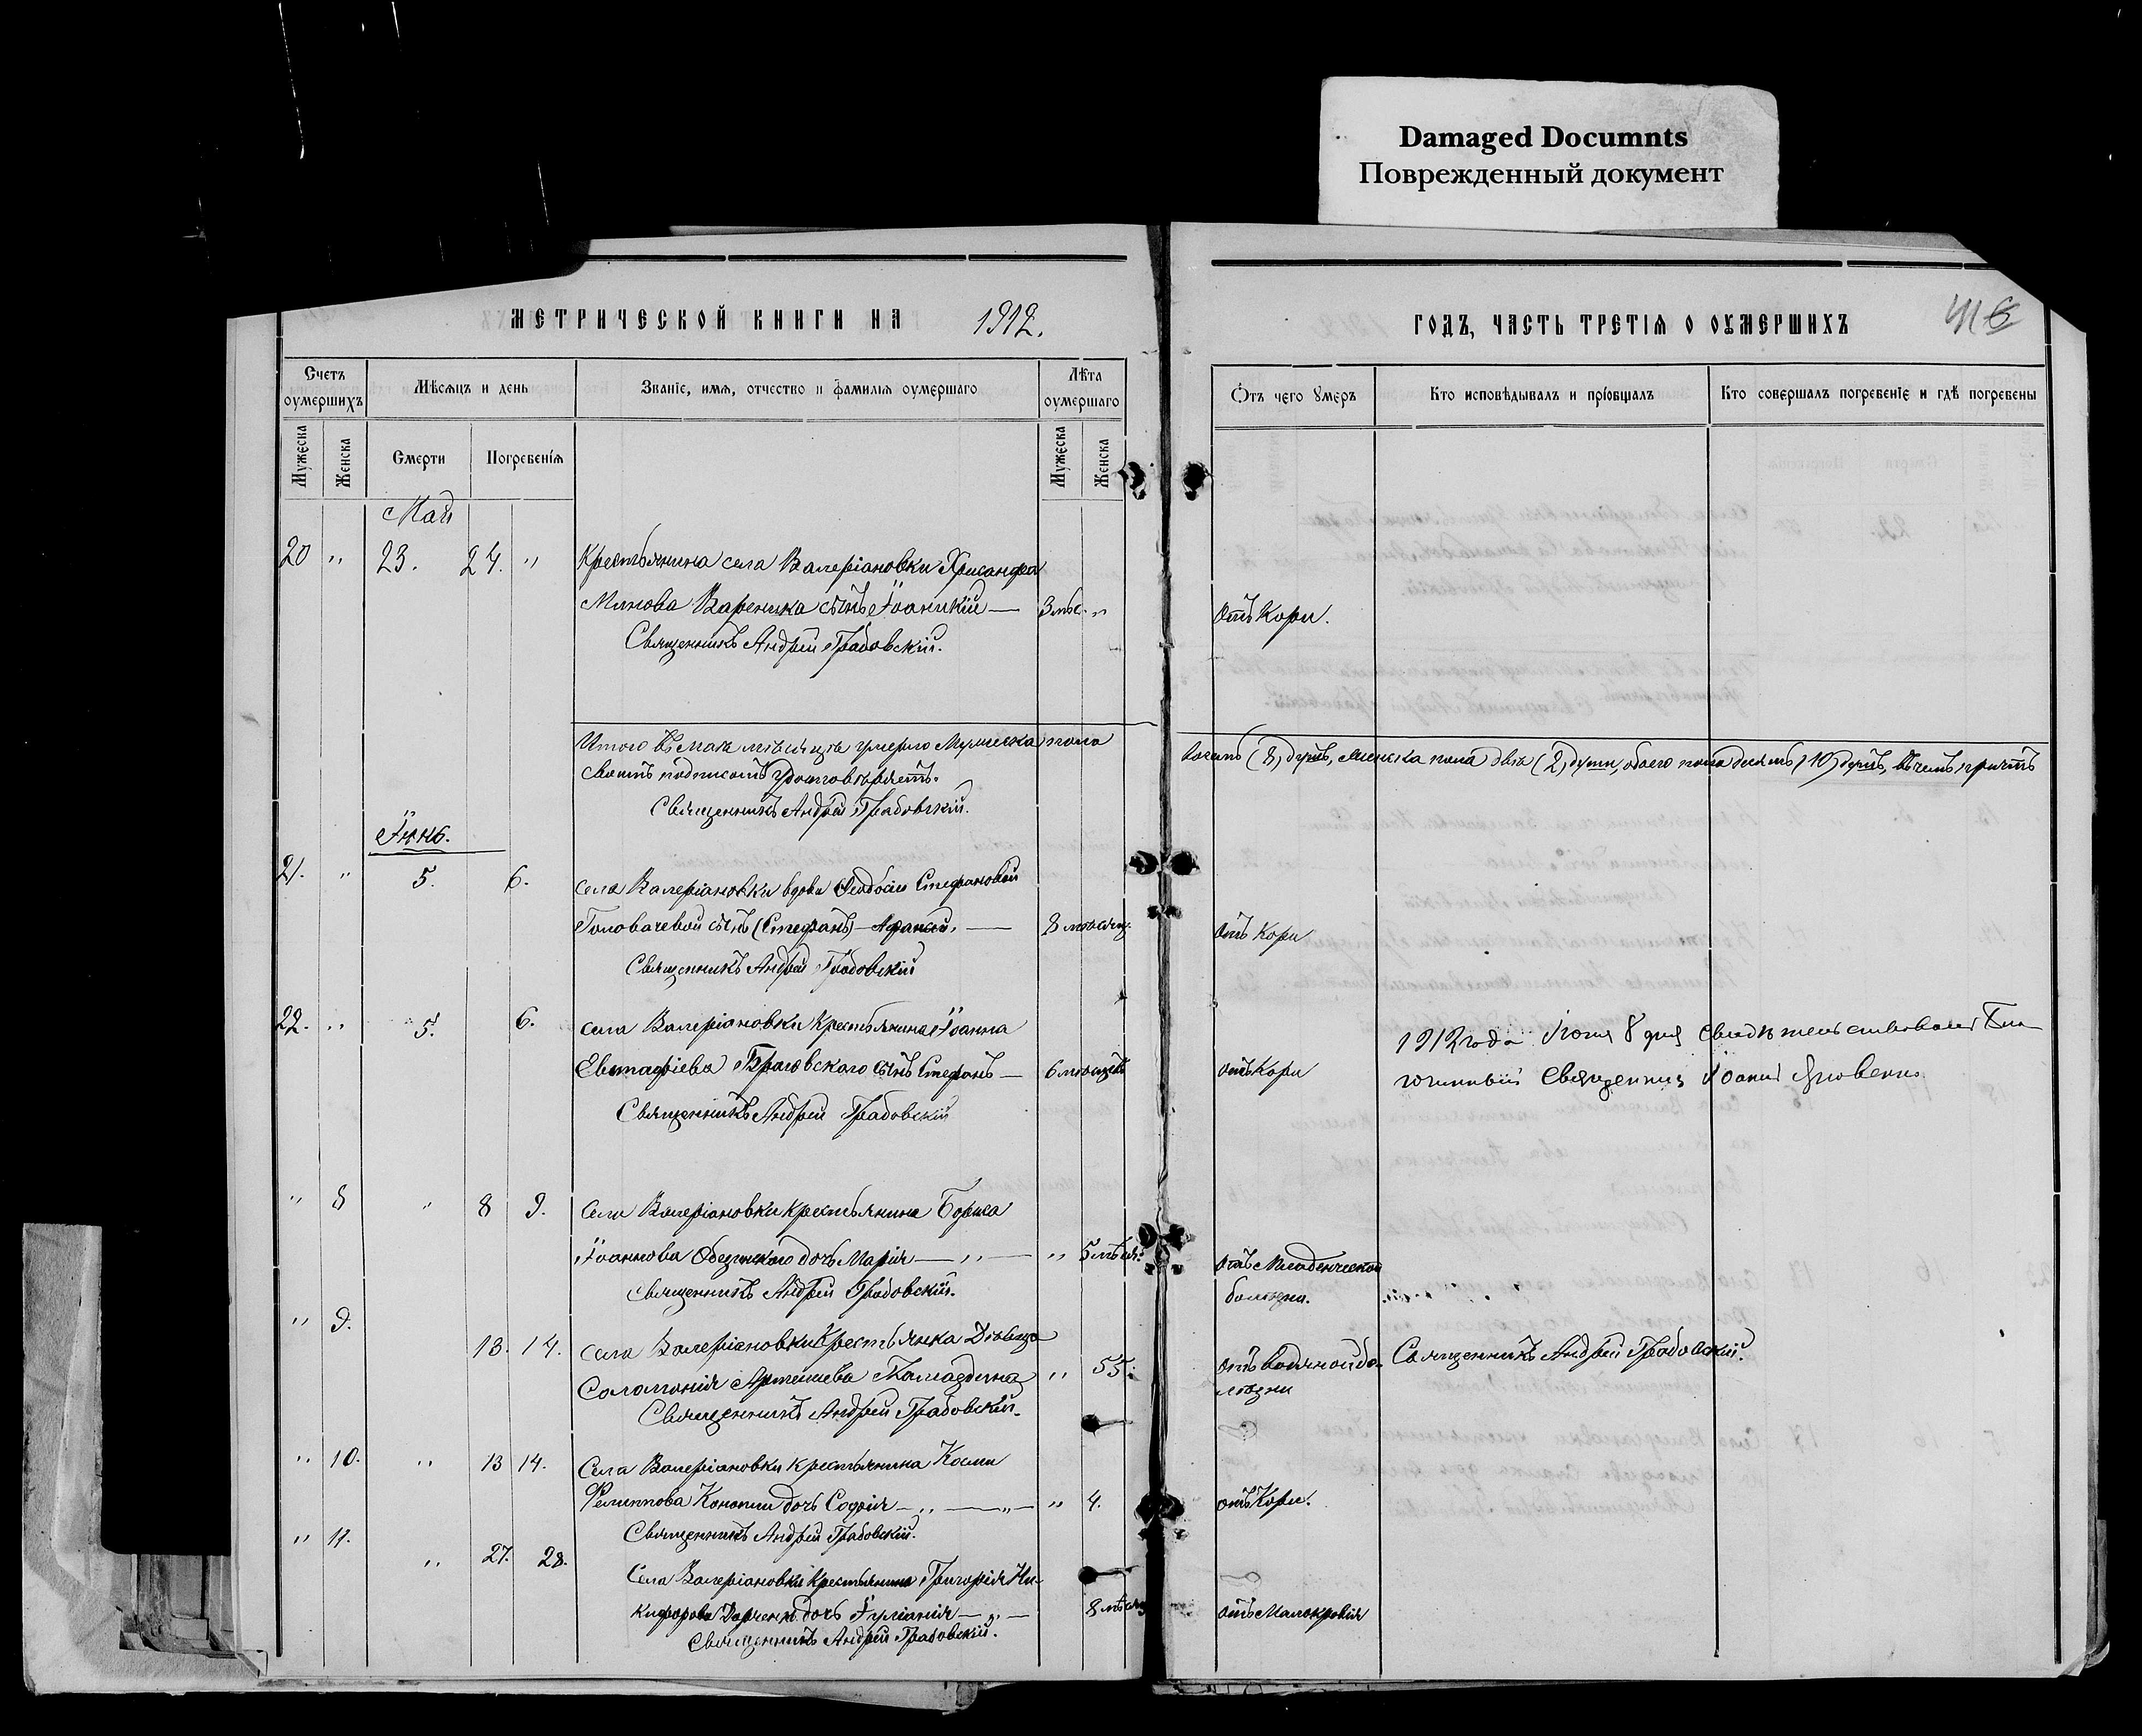 Damaged Documnts
Поврежденный документ
МЕТРИЧЕСКОЙ КНИГИ НА 1912.
Счетъ оумершихъ
Мѣсяцъ и день
Званіе, имя, отчество и фамилія оумершаго
Лѣта оумершаго
Мужеска
Женска
Смерти
Погребенія
Мужеска
Женска
Май
20 " 23. 24. " Крестьянина села Валеріановки Хрисанфа
Минова Вареника сынъ Іоанникій — 3 мѣс. "
Священникъ Андрей Грабовскій.
Итого въ маѣ мѣсяцѣ умерло мужеска пола
своимъ подписомъ удостовѣряетъ.
Священникъ Андрей Грабовскій.
Іюнь.
21. " 5. 6. села Валеріановки вдовы Ѳеодосіи Стефановой
Головачевой сынъ (Стефанъ) — 8 мѣсяц.
Священникъ Андрей Грабовскій
22. " 5. 6. села Валеріановки крестьянина Іоанна
Евстафіева сынъ Стефанъ — 6 мѣсяцевъ
Священникъ Андрей Грабовскій
" 8 " 8 9. Села Валеріановки крестьянина Бориса
Іоаннова дочь Марія — " — " 5 мѣсяц.
Священникъ Андрей Грабовскій.
" 9. 13. 14. села Валеріановки крестьянка Дѣвица
Соломонія " 55.
Священникъ Андрей Грабовскій.
" 10. " 13 14. Села Валеріановки крестьянина Космы
Филиппова Конопли дочь Софія — " — " — " 4.
Священникъ Андрей Грабовскій.
" 11. " 27. 28. Села Валеріановки крестьянина Григорія Ни-
кифорова дочь Іуліанія — " — 8 мѣсяц
Священникъ Андрей Грабовскій.
ГОДЪ, ЧАСТЬ ТРЕТІЯ О ОУМЕРШИХЪ
Отъ чего умеръ
Кто исповѣдывалъ и пріобщалъ
Кто совершалъ погребеніе и гдѣ погребены
Отъ Кори.
восемь (8) душъ, женска пола двѣ (2) души, обоего пола десять (10) душъ, въ чемъ причтъ
Отъ Кори
1912 года Іюня 8 дня свидѣтельствовалъ Бла-
отъ Кори
гочинный Священникъ Іоаннъ
Отъ Младенческой
болѣзни.
Отъ водяной бо- Священникъ Андрей Грабовскій.
лѣзни
отъ Кори.
отъ Малокровія